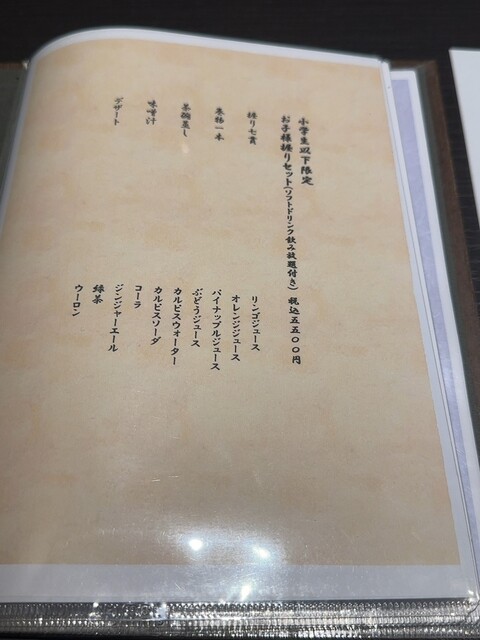 小学生以下限定
お子様握りセット(ソフトドリンク飲み放題付き) 税込五五〇〇円
握り七貫
巻物一本
茶碗蒸し
味噌汁
デザート
リンゴジュース
オレンジジュース
パイナップルジュース
ぶどうジュース
カルピスウォーター
カルピスソーダ
コーラ
ジンジャーエール
緑茶
ウーロン